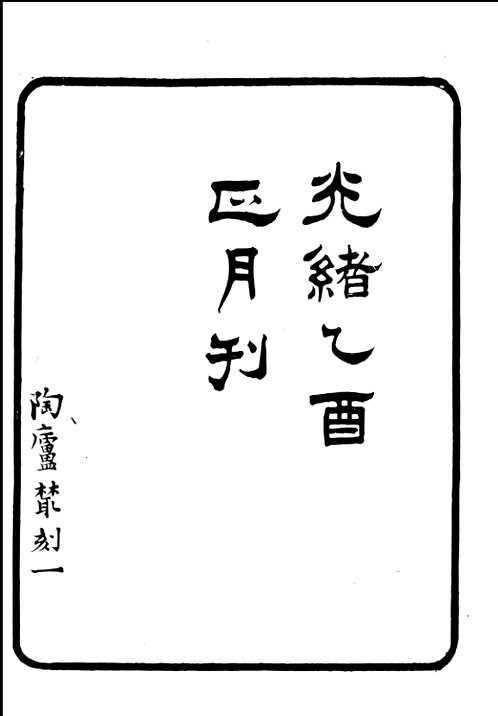 光緒乙酉
正月刊
陶廬叢刻一